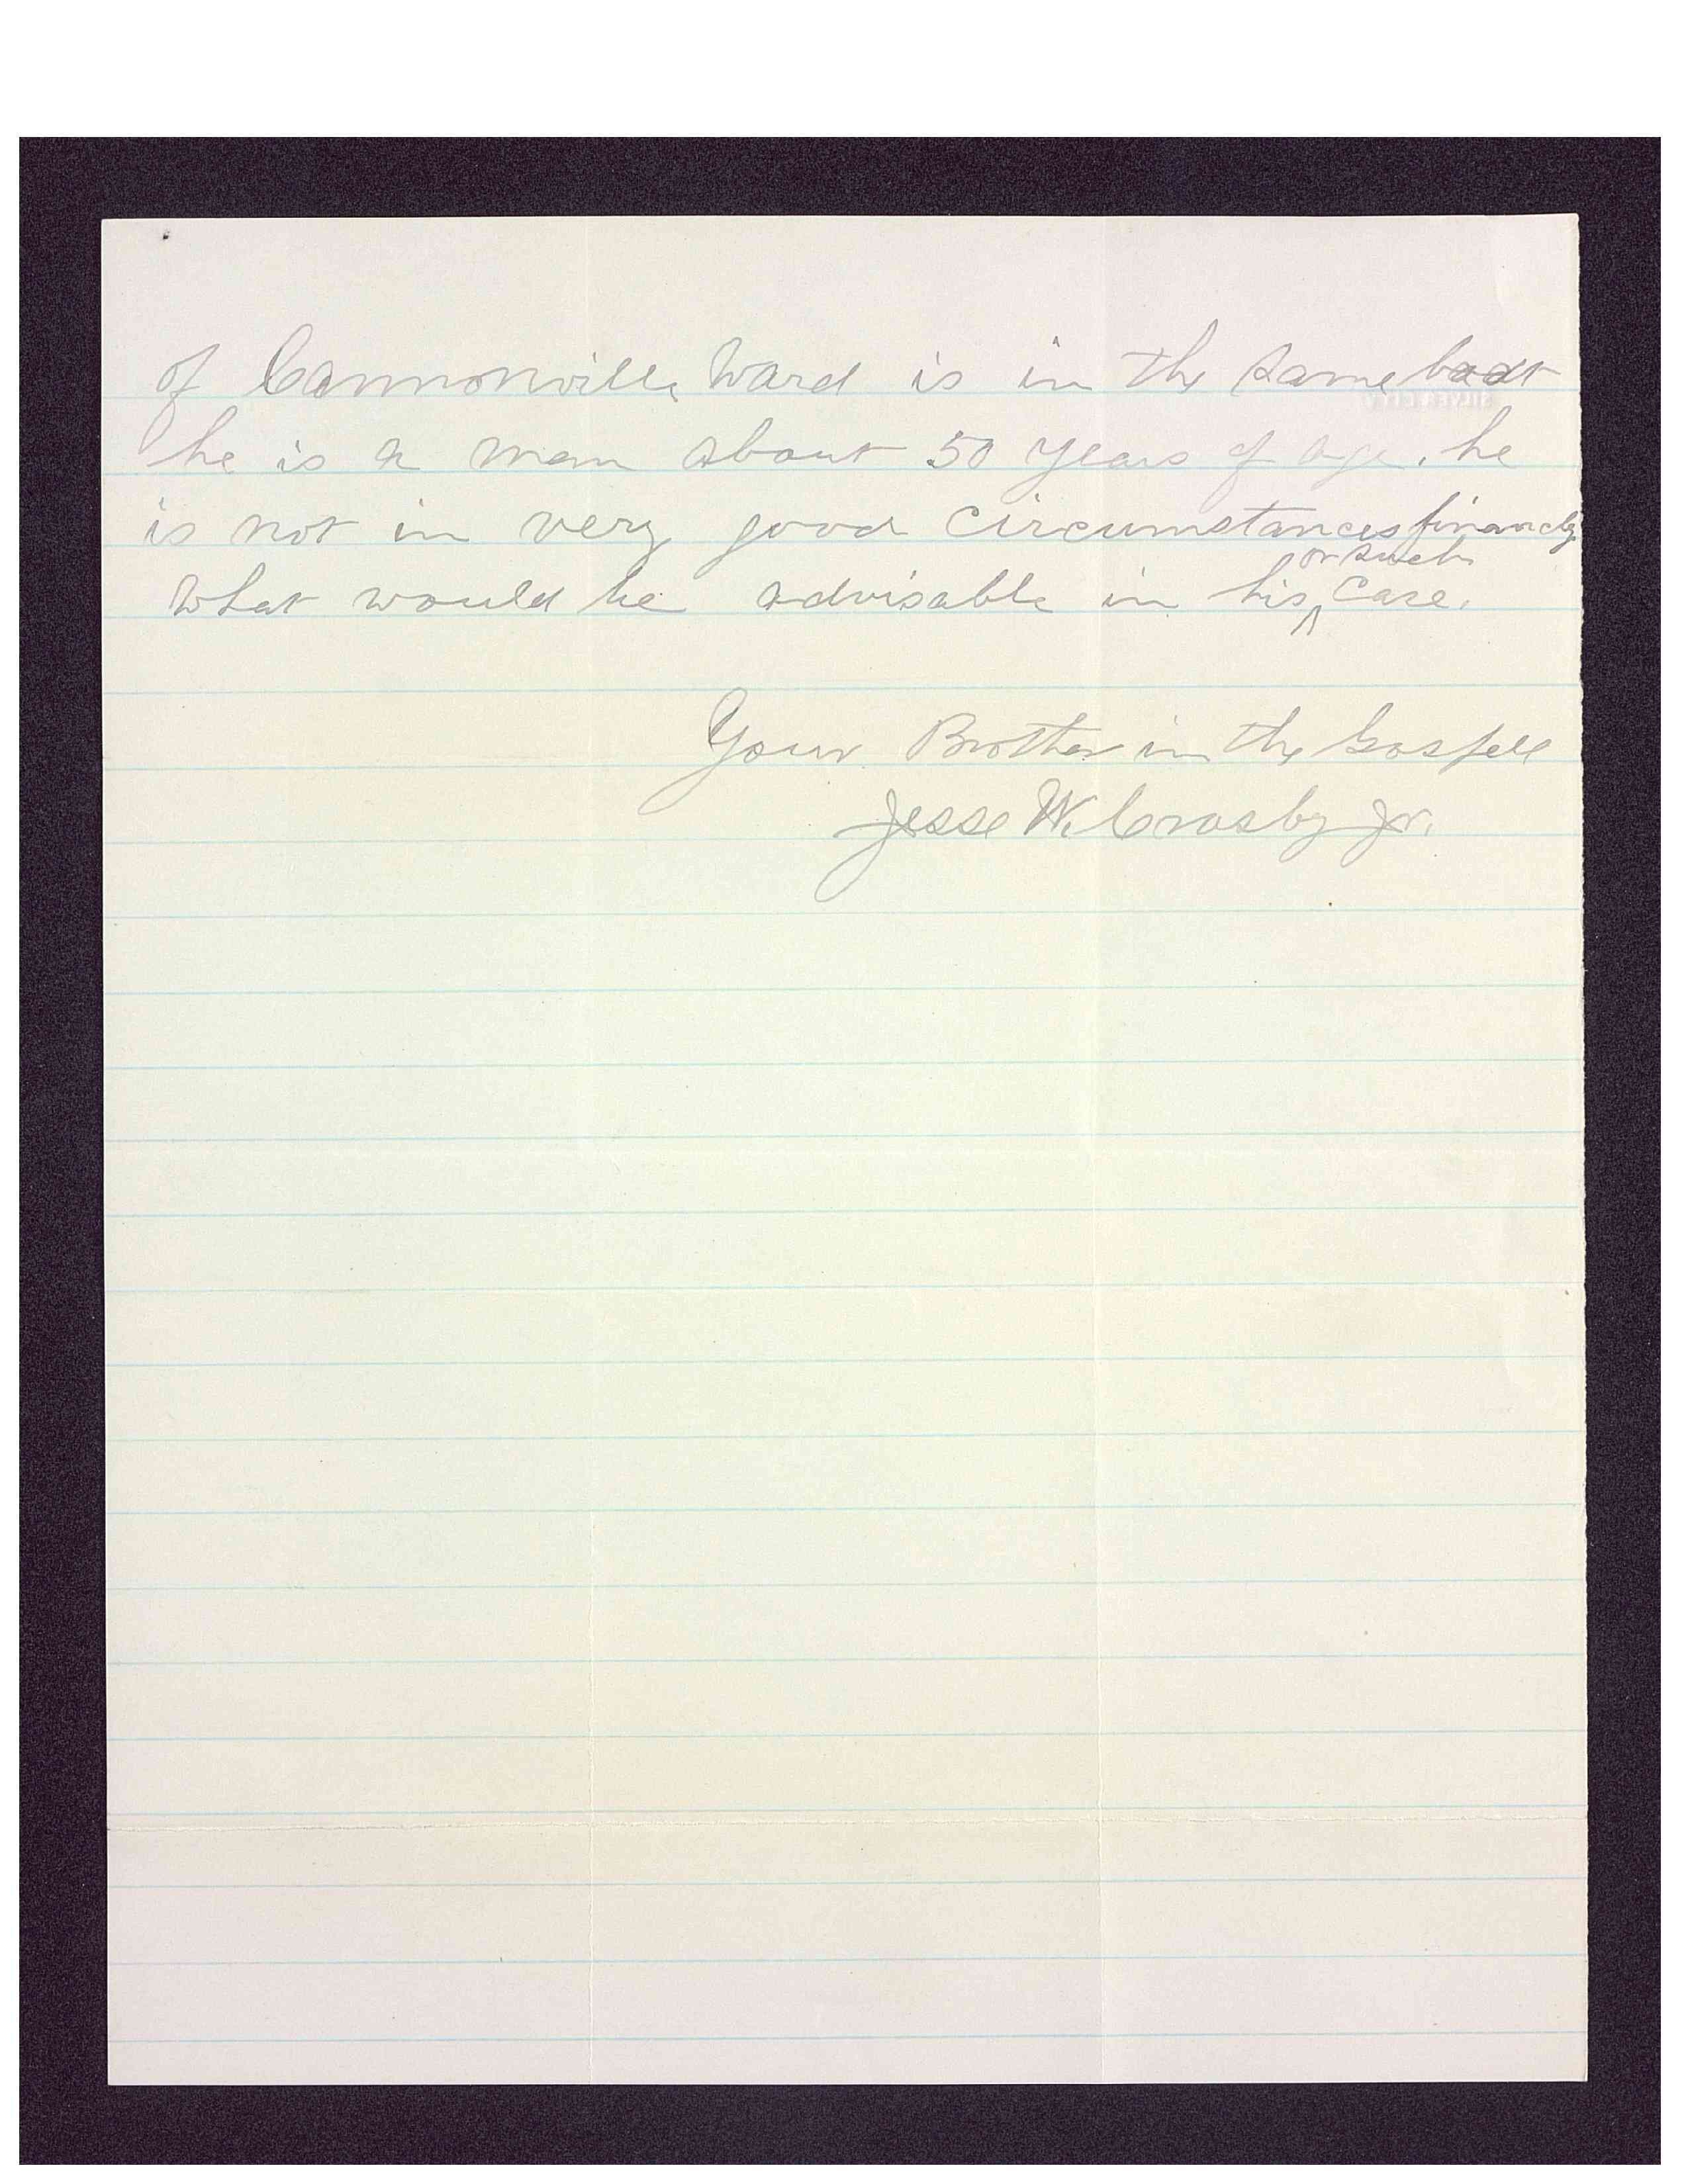 of Cannonville Ward is in the same boat
he is a man about 50 years of age, he
is not in very good circumstances financly
what would be advisable in his ^ or such case.
Your Brother in the Gospell
Jesse W. Crosby Jr.